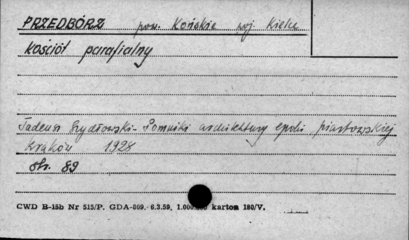 PRZEDBÓRZ pow. Końskie woj. Kielce
kościół parafialny
Tadeusz Szydłowski - Pomniki architektury epoki piastowskiej
Kraków 1928
str. 89
CWD B-15b Nr 515/P. GDA-809. 6.3.59. karton 180/V.